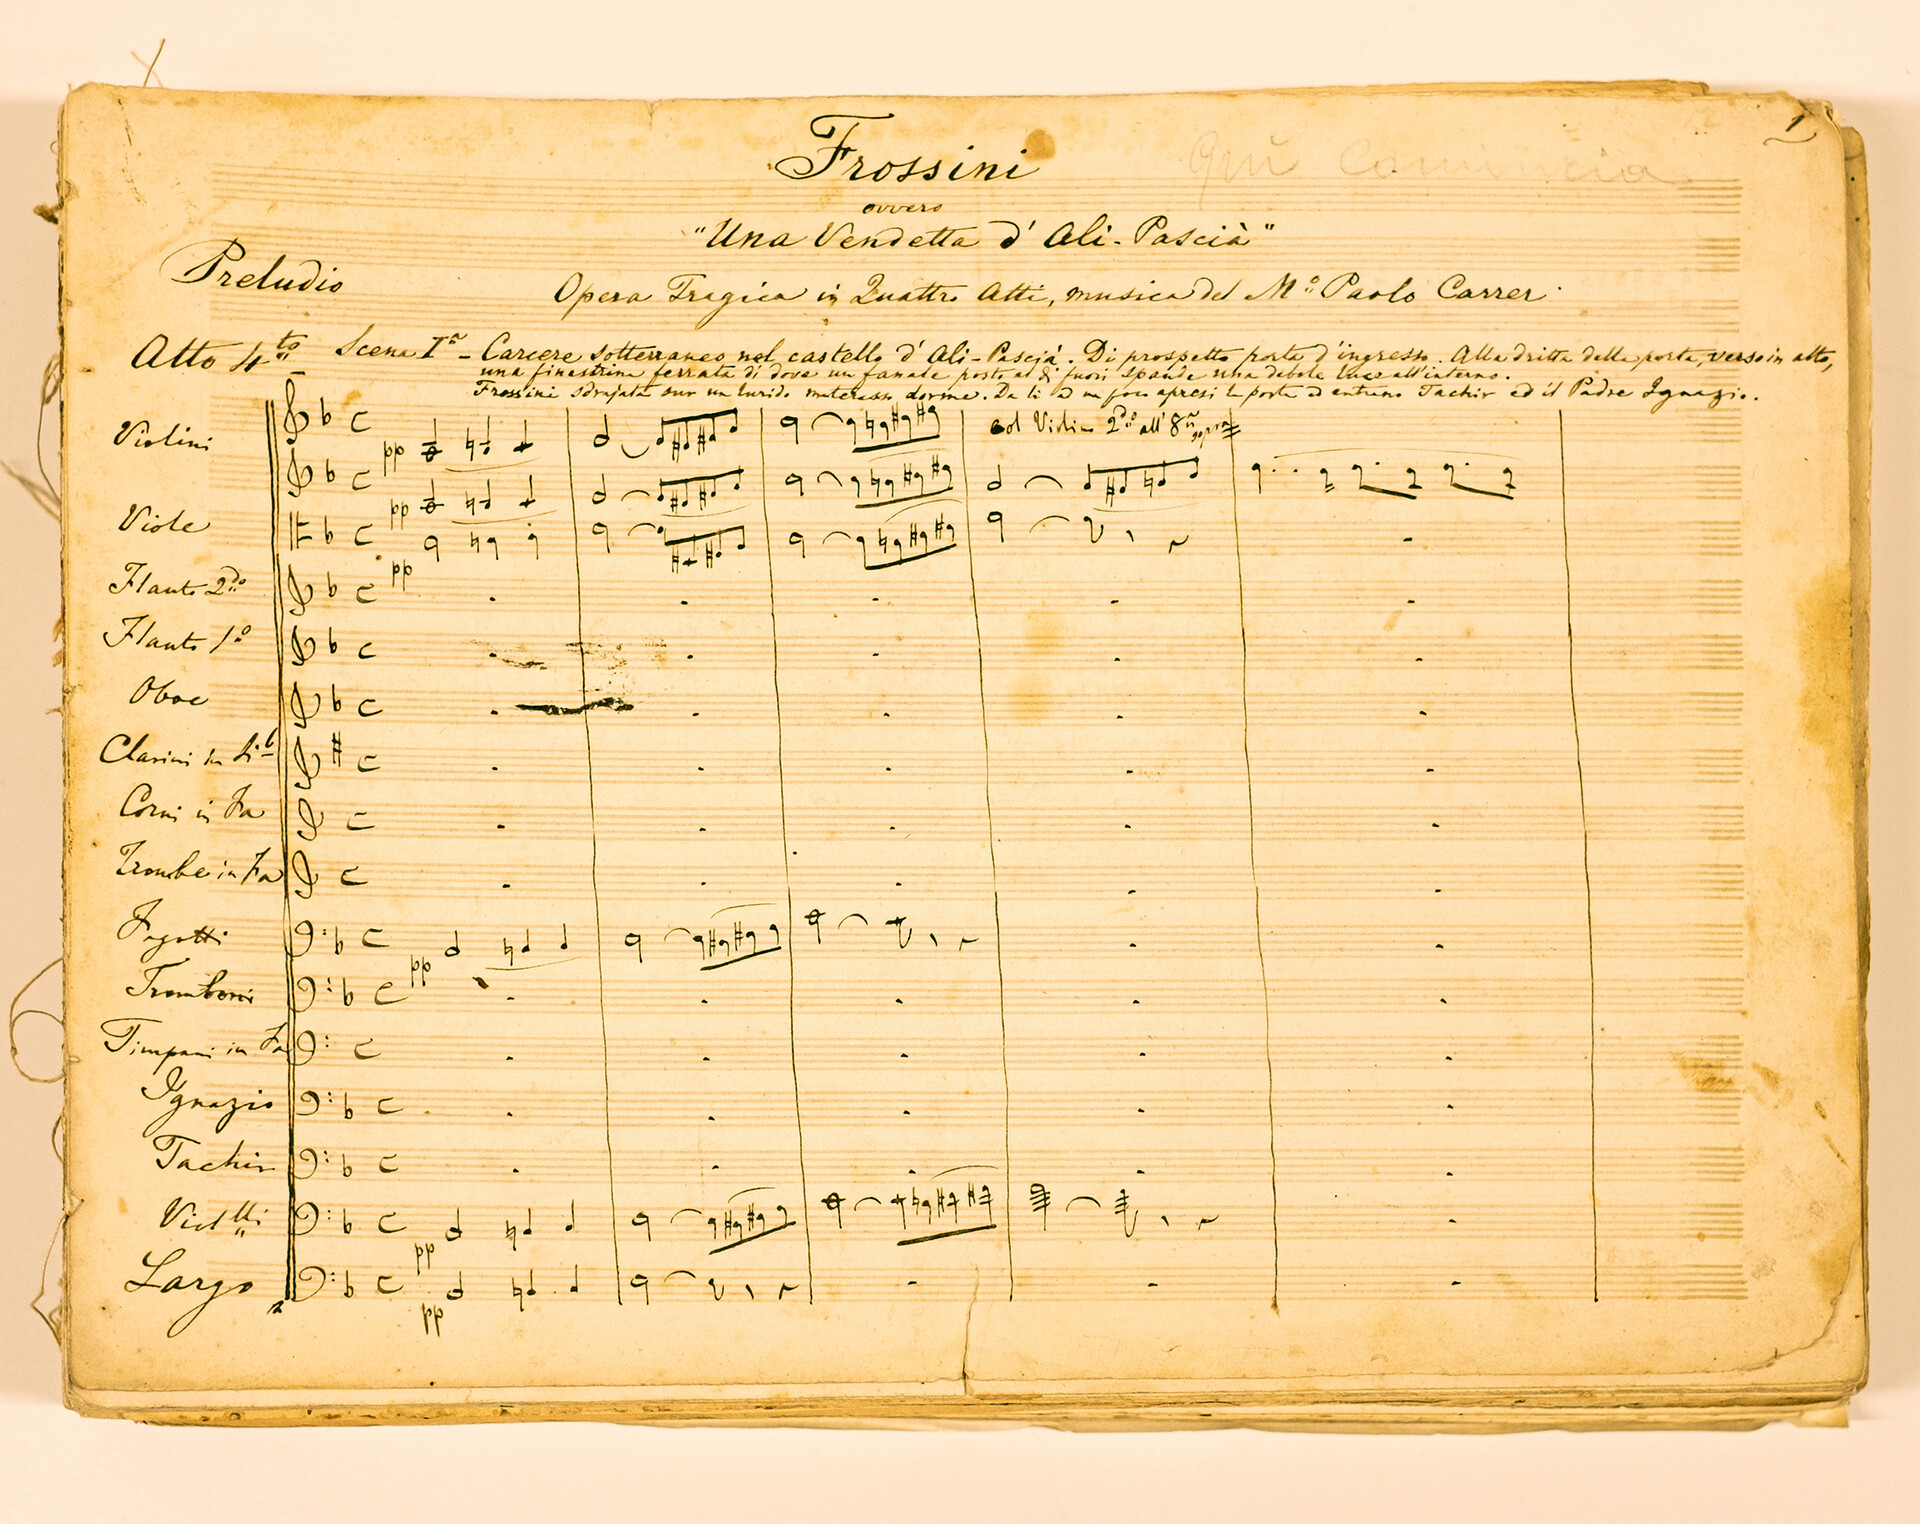 1
Frossini
Quì Comincia
ovvero
"Una Vendetta d'Ali-Pascià"
Preludio
Opera Tragica in Quattro Atti, musica del Mº Paolo Carrer
Atto 4to Scena Iª - Carcere sotterraneo nel castello d'Ali-Pascià. Di prospetto porta d'ingresso. Alla dritta della porta, verso in alto,
una finestrina ferrata di dove un fanale posto al di fuori spande una debole luce all'interno.
Frossini sdrajata sur un lurido materasso dorme. Da lì a un poco apresi la porta ed entrano Tachir ed il Padre Ignazio.
Violini
col Violino 2do all'8va sopra
pp
pp
Viole
pp
Flauto 2do
Flauto 1º
Oboe
Clarini in Sib
Corni in Fa
Trombe in Fa
Fagotti
pp
Tromboni
Timpani in Fa
Ignazio
Tachir
Viollli
pp
Largo
pp